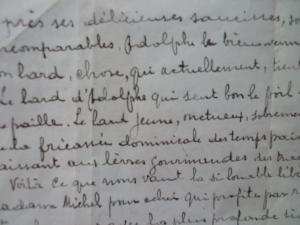 près ses délicieuses saucisses, so
ncomparables. Adolphe le bienvenu
on lard, chose, qui actuellement, tient
Le lard d'Adolphe qui sent bon le foin
paille. Le lard jeune, onctueux,
la fricassée dominicale des temps
aissant aux lèvres gourmandes des
Voilà ce que nous vaut la si louable
adame Michel pour celui qui profite par
la plus profonde